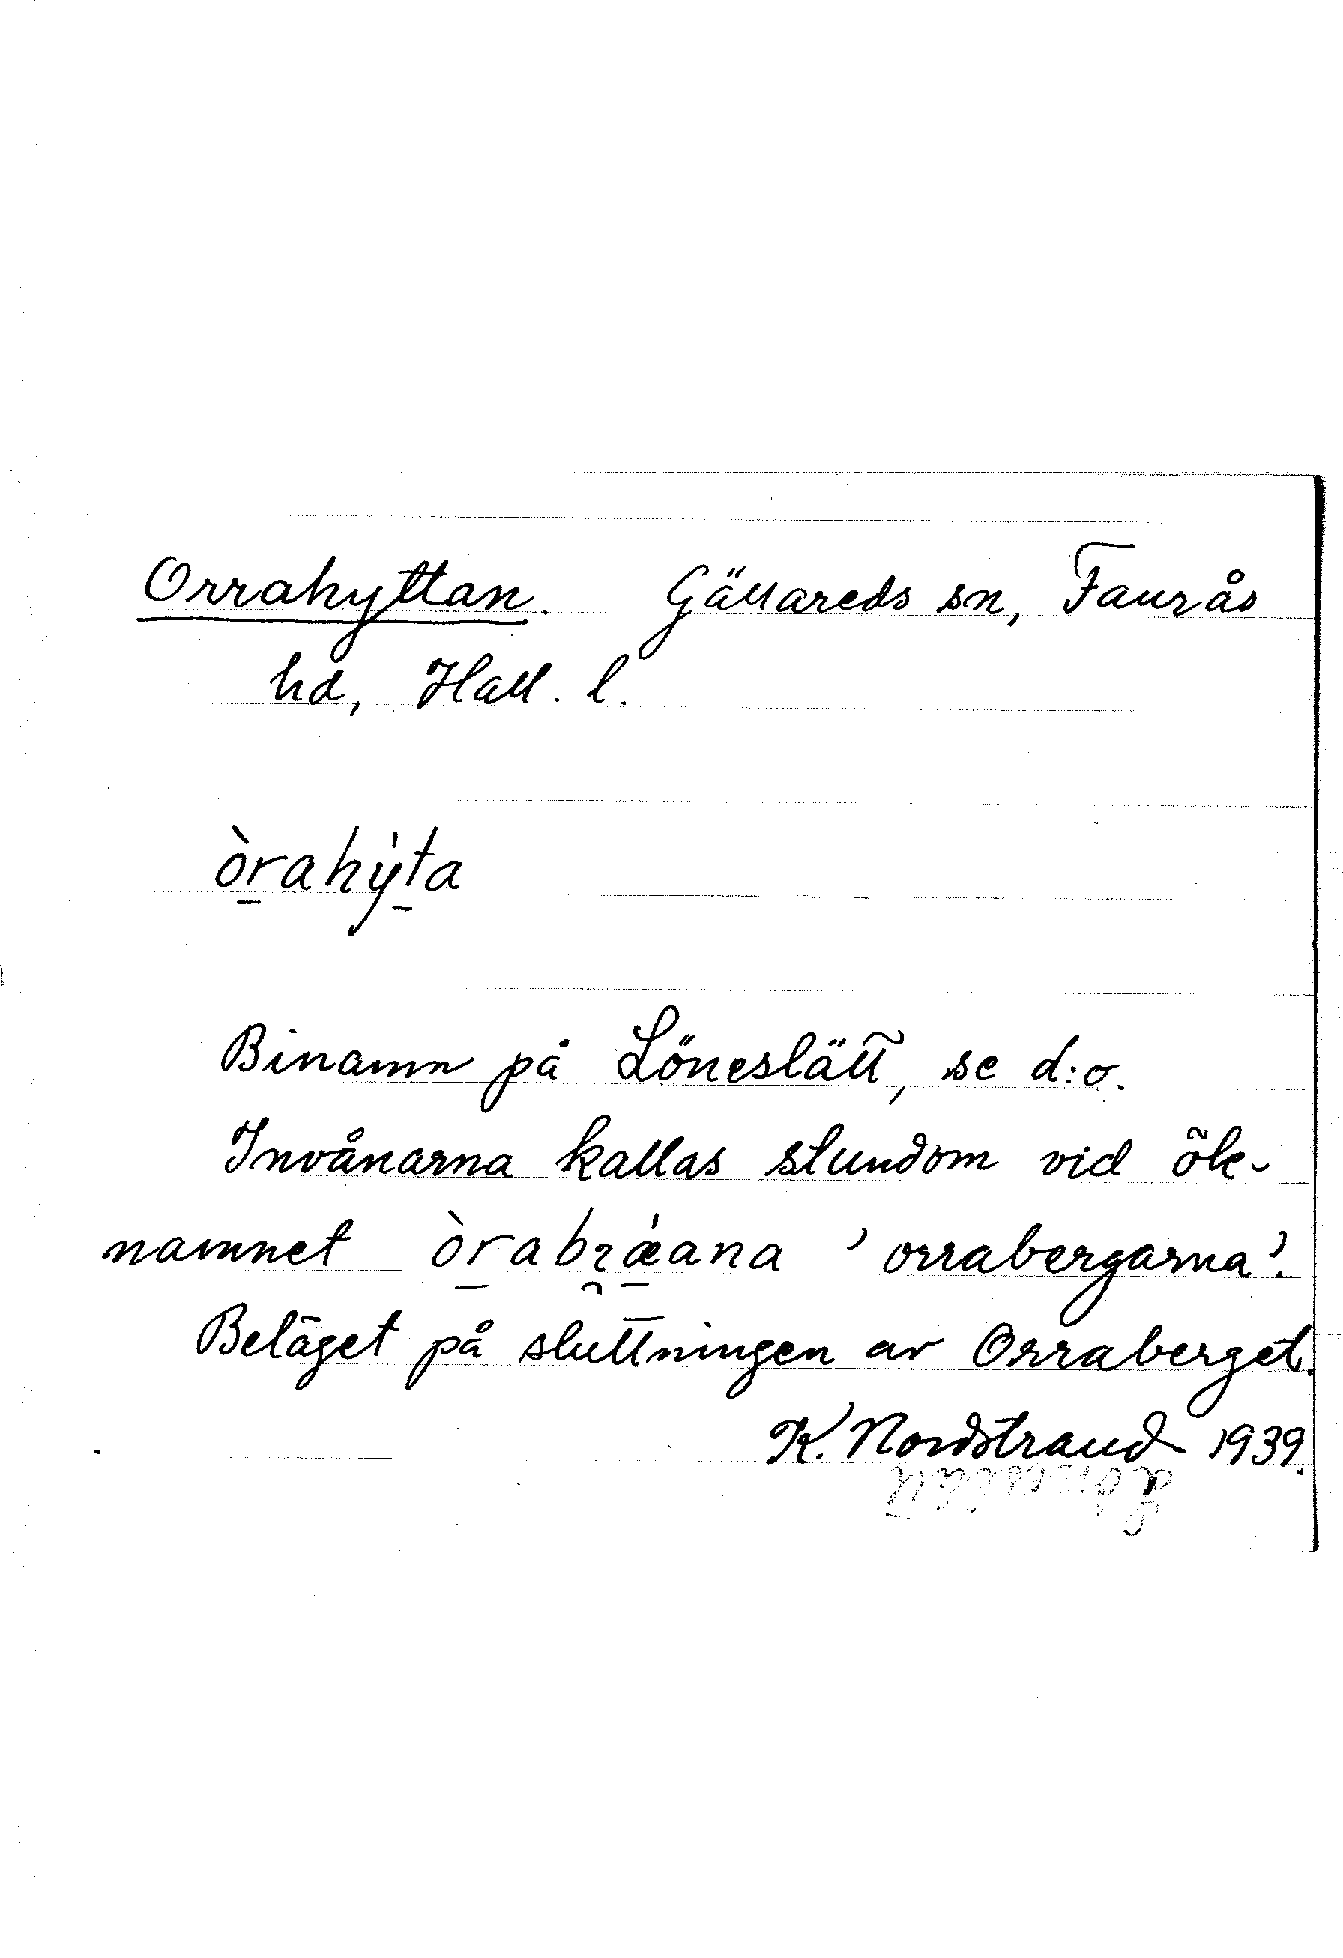 Orrahyttan. Gällareds sn, Faurås
hd, Hall. l.
òrahy̍ta
Binamn på Löneslätt, se d:o.
Invånarna kallas stundom vid ök-
namnet òrabræ̍ana 'orrabergarna'.
Beläget på sluttningen av Orraberget.
K. Nordstrand 1939.